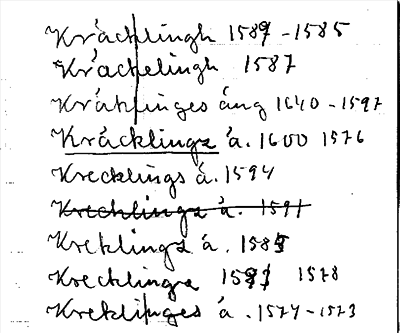 Kråcklingh 1589-1585
Kråckelingh 1587
Kråklinges äng 1640-1597
Kråcklinga å. 1600 1576
Krecklings å. 1594
Krecklinga å. 1591
Kreklinga å. 1585
Krecklinga 1578
Kreklinges å. 1574-1573